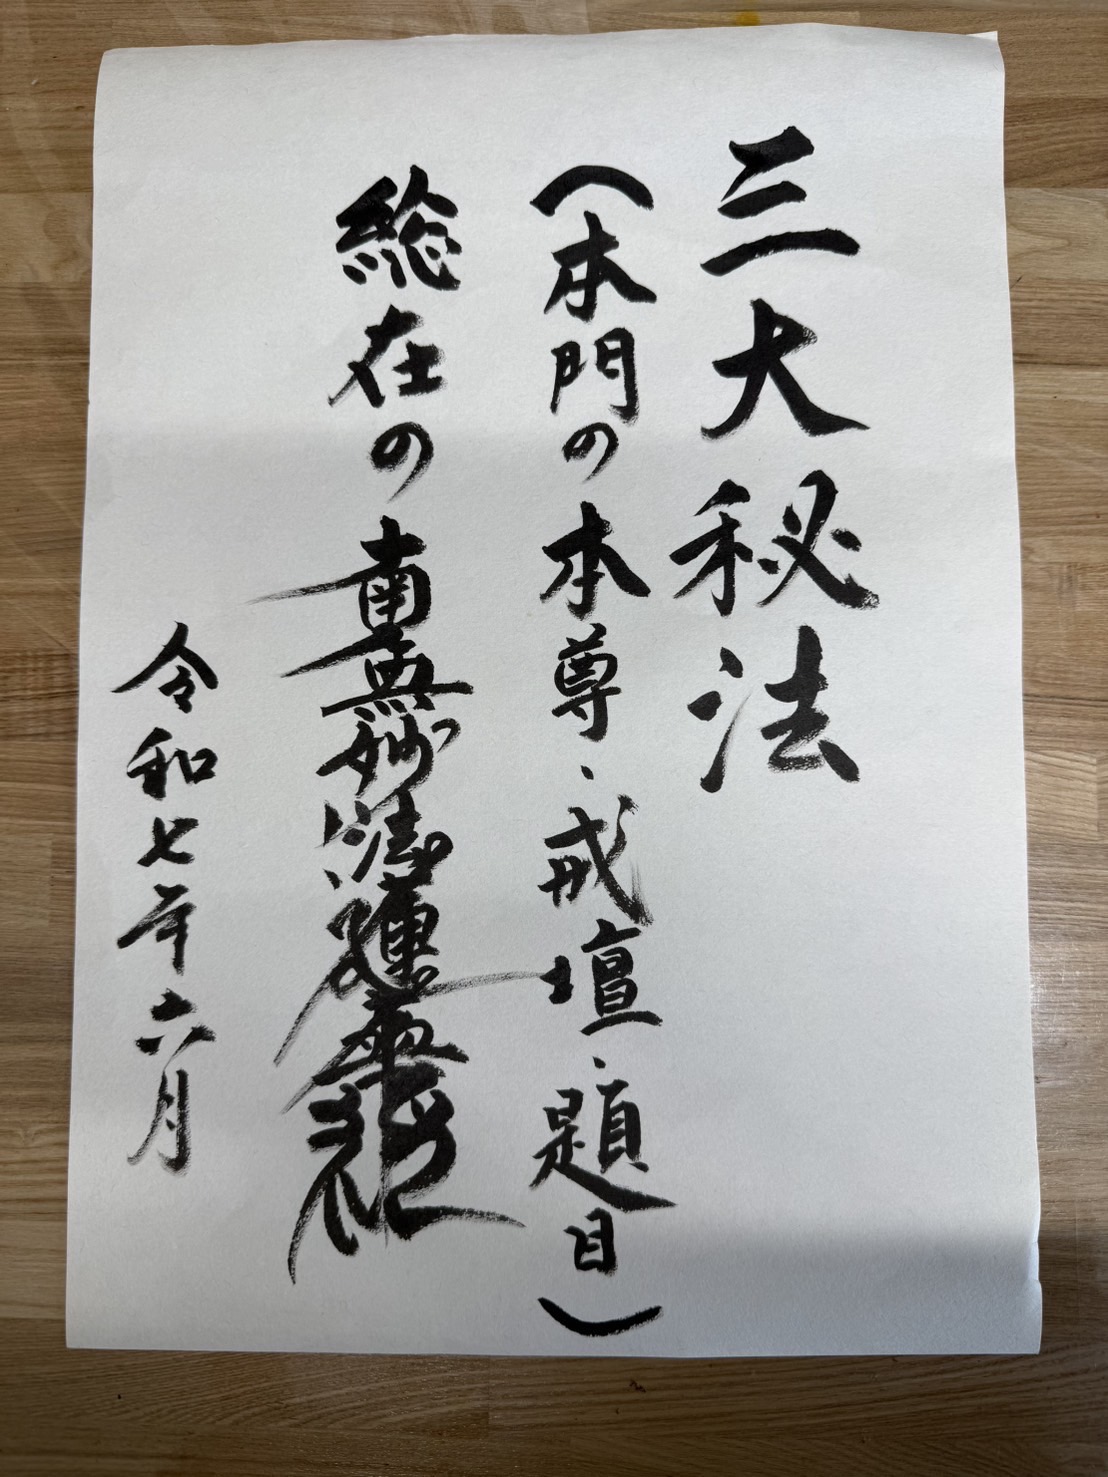 三大秘法
(本門の本尊・戒壇・題目)
総在の南無妙法蓮華経
令和七年六月